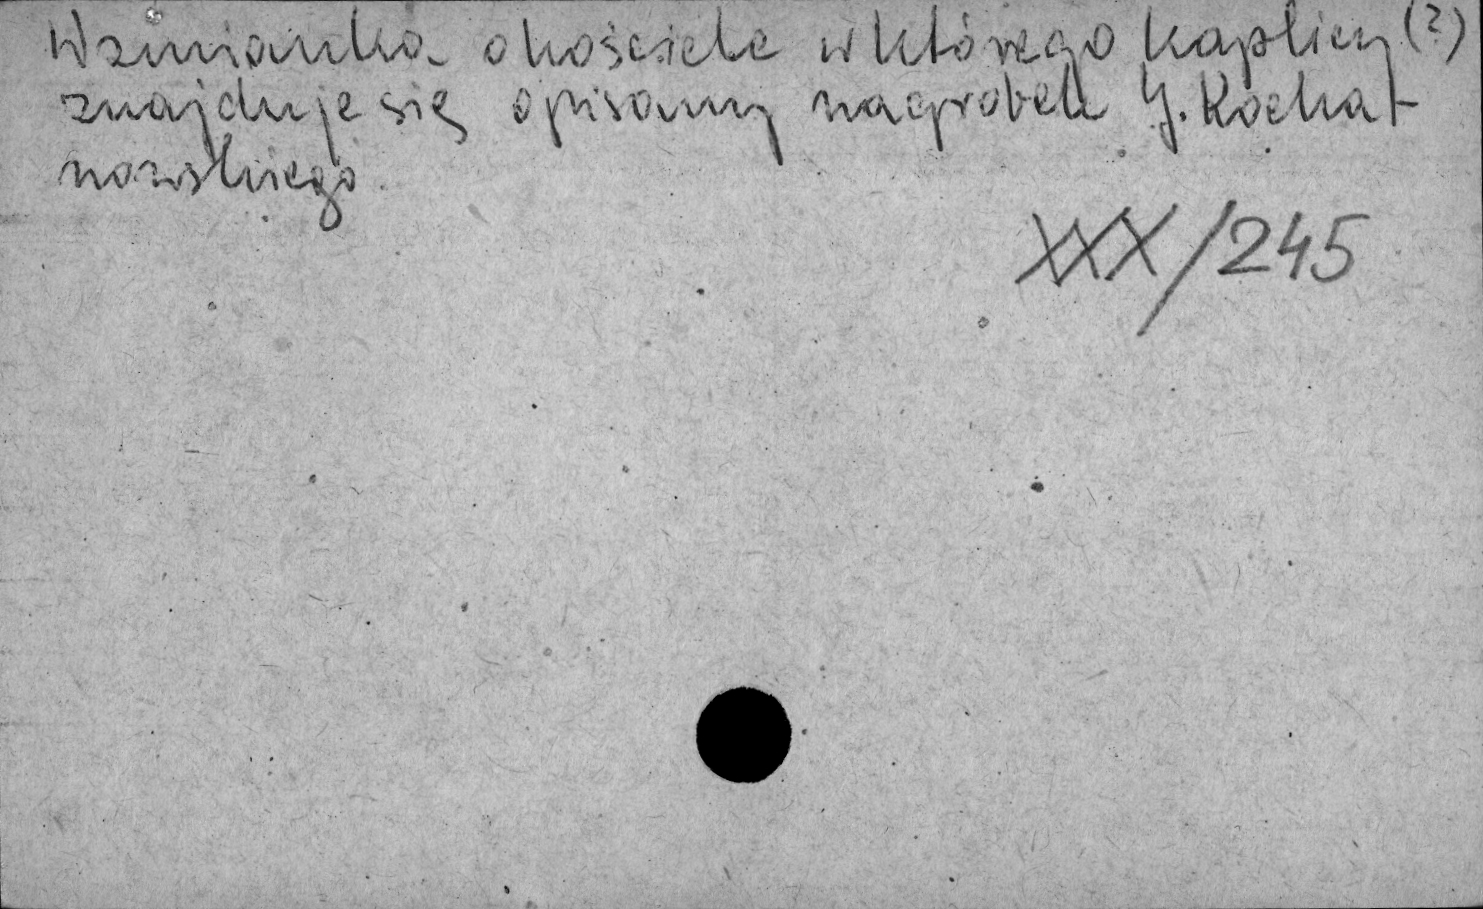 Wzmianka o kościele w którego kaplicy (?)
znajduje się opisany nagrobek J. Kocha-
nowskiego.
XXX/245